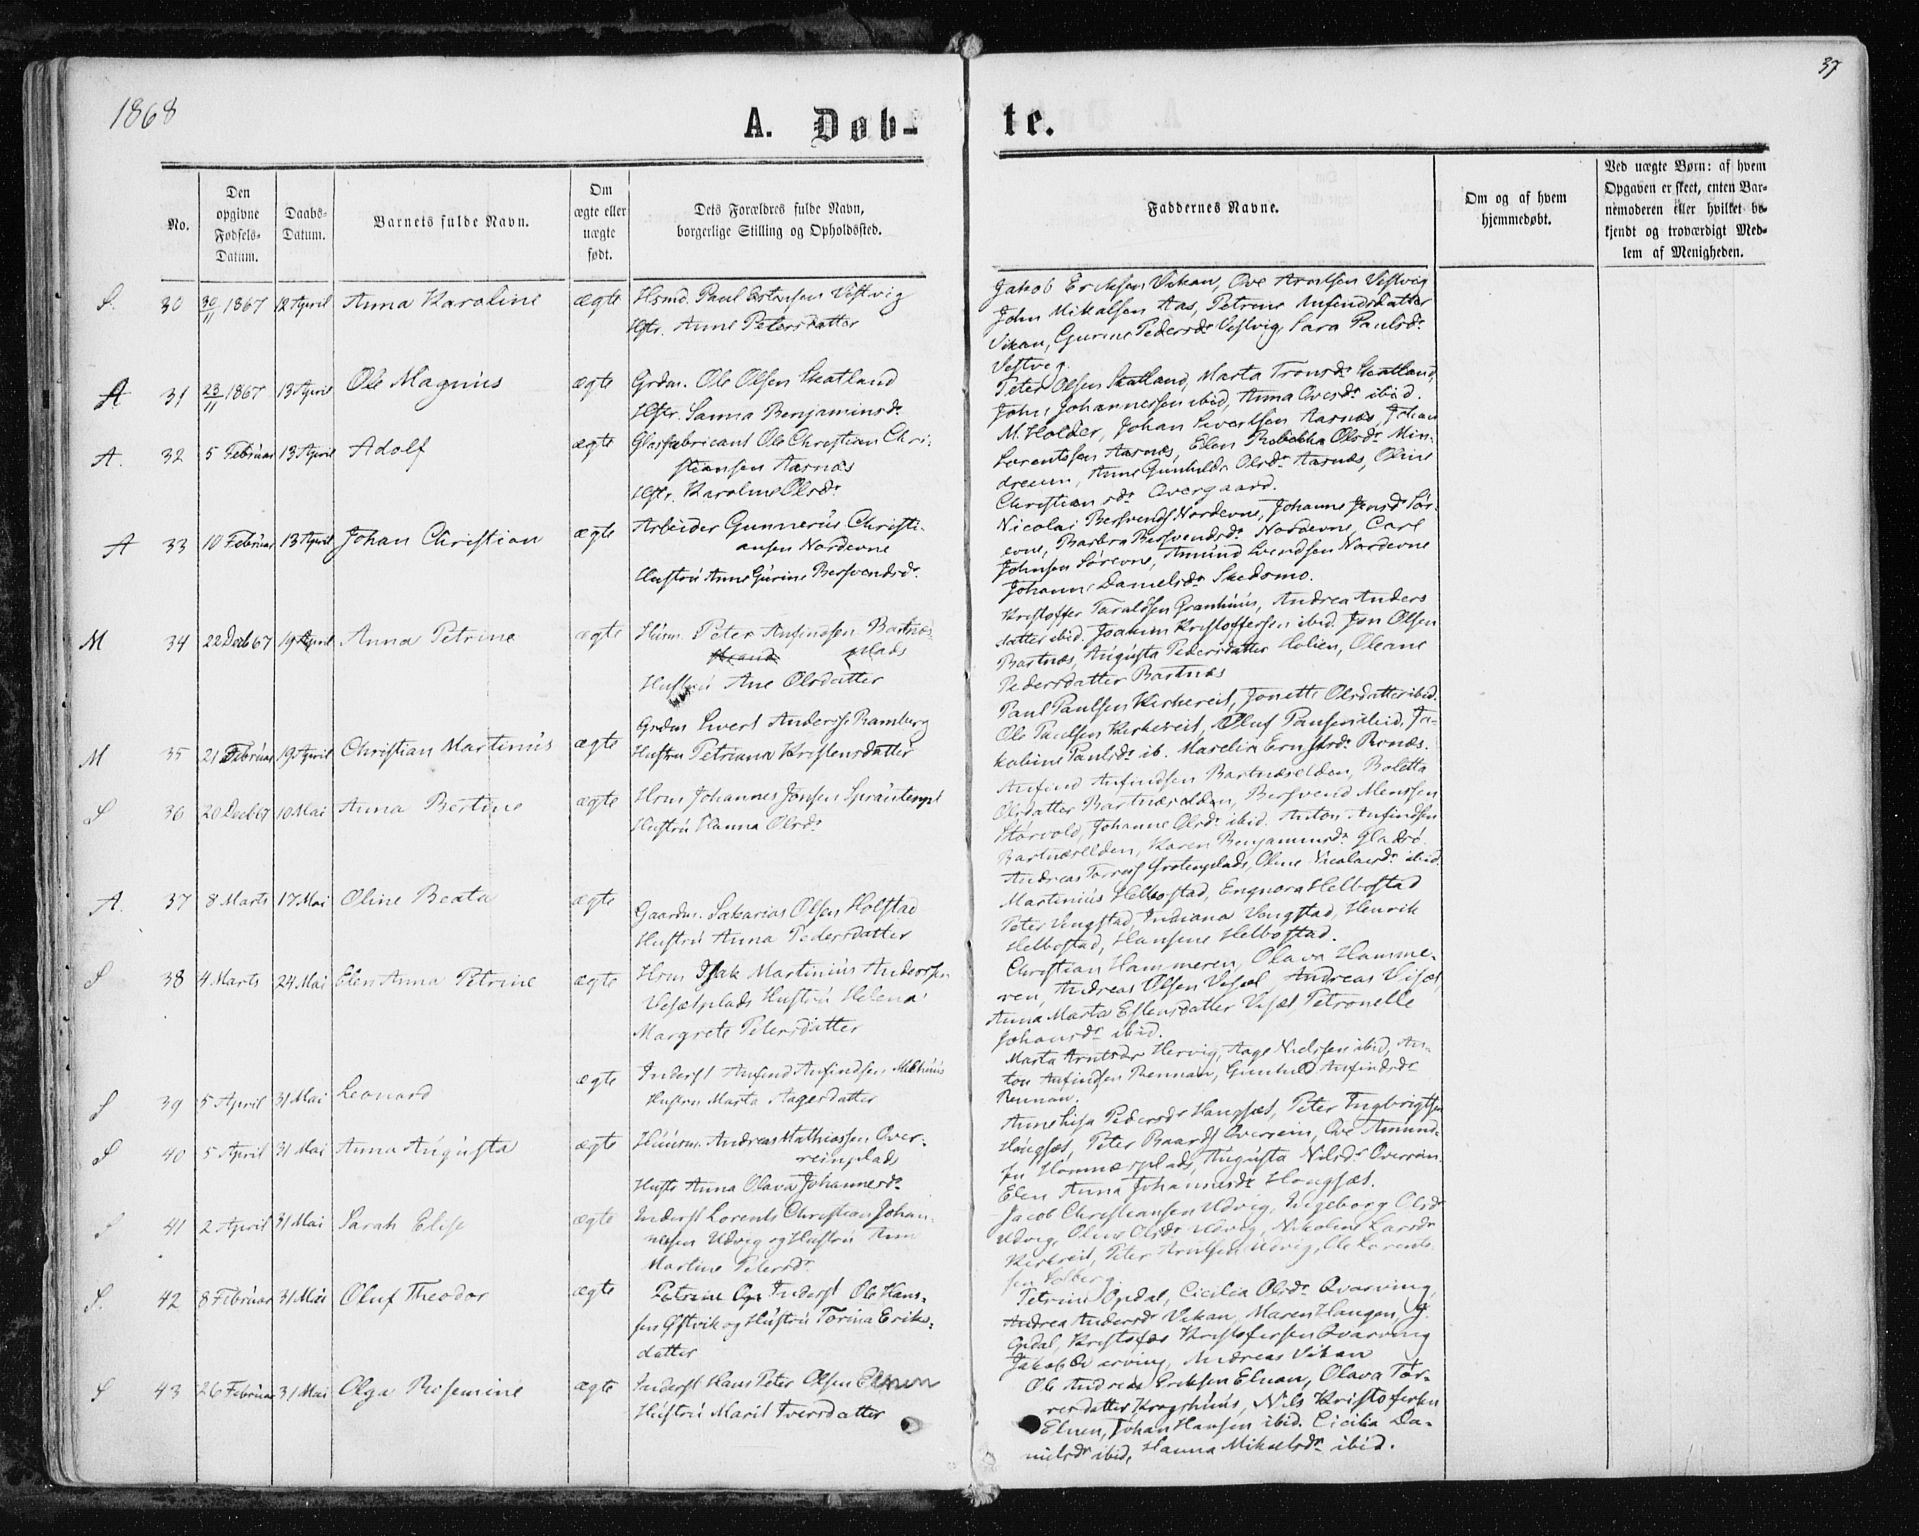 1868
37
A. Døb-
te.
No.
Den opgivne Fødsels-Datum.
Daabs-Datum.
Barnets fulde Navn.
Om ægte eller uægte født.
Dets Forældres fulde Navn, borgerlige Stilling og Opholdssted.
Faddernes Navne.
Om og af hvem hjemmedøbt.
Ved uægte Børn: af hvem Opgaven er skeet, enten Barnemoderen eller hvilket bekjendt og troværdigt Medlem af Menigheden.
S. 30 30/11 1867 12 April Anna Karoline ægte Hsmd. Paul Estensen Vestvig
Hstr. Anne Petersdatter
Jakob Eriksen Vikan, Ove Arntsen Vestvig
John Mikalsen Aas, Petrine Anfindsdatter
Vikan, Gurine Pedersdr Vestvig, Sara Paulsdr
Vestvig.
A 31 23/11 1867 13 April Ole Magnus ægte Grdm. Ole Olsen Skatland
Hstr. Sanna Benjaminsdr
Peter Olsen Skatland, Marta Tronsdr Skatland,
John Johannessen ibid, Anna Ovesdr ibid.
A. 32 5 Februar 13 April Adolf ægte Glasfabricant Ole Christian Chri-
stiansen Aarnæs
Hstr. Karoline Olsdr
M. Holder, Johan Sivertsen Aarnæs, Johan
Lorentssen Aarnæs, Elen Rebekka Olsdr Min-
dreun, Anne Gunhilda Olsdr Aarnæs, Oline
Christiansdr Overgaard.
A 33 10 Februar 13 April Johan Christian ægte Arbeider Gunnerus Christi-
ansen Nordevne
Hustru Anne Gurine Bersvendsdr.
Nicolai Bersvends Nordevne, Johanne Jensdr Sør-
evne, Barbra Bersvendsdr Nordevne, Carl
Johnsen Sørevne, Amund Svendsen Nordevne
Johanne Danielsdr Skedsmo.
M 34 22 Decb 67 19 April Anna Petrine ægte Husm. Peter Anfindsen Bartnes-
plads
Hustru Ane Olsdatter
Kristoffer Taraldsen Granhuus, Andrea Anders
datter ibid. Joakim Kristoffersen ibid. Jon Olsen
Bartnæs, Augusta Pedersdatter Holien, Oleane
Pedersdatter Bartnæs
M 35 21 Februar 19 April Christian Martinus ægte Grdm Sivert Anderss. Ramberg
Hustru Petriana Kristensdatter
Paul Paulsen Kirkereit, Jonette Olsdatter ibid.
Ole Paulsen Kirkereit, Oluf Paulsen ibid, Ja-
kobine Paulsdr ib. Marelia Ernstsdr Rønæs.
S 36 20 Decb 67 10 Mai Anna Bertine ægte Hsm Johannes Jonsen Sprautenpl
Hustru Hanna Olsdr
Anfind Anfindsen Bartnæselden, Boletta
Olsdatter Bartnæselden, Bersvend Menssen
Størvold, Johanne Olsdr ibid. Anton Anfindsen
Bartnæselden, Karen Benjaminsdr Gladsø
Andreas Torresf Grotenplads, Oline Nicolaisdr ibid.
A. 37 8 Marts 17 Mai Oline Beata ægte Gaardm. Sakarias Olsen Holstad
Hustru Anna Pedersdatter
Martinus Helbostad, Engnora Helbostad
Peter Vengstad, Indiana Vengstad, Henrik
Helbostad, Hansine Helbostad.
S 38 4 Marts 24 Mai Elen Anna Petrine ægte Hsm Isak Martinius Andersen
Visætplads Hustru Helena
Margrete Petersdatter
Christian Hammeren, Olava Hamme-
ren, Andreas Olsen Visæt Andreas Visæt
Anna Marta Estensdatter Visæt Petronelle
Johansdr ibid.
S 39 5 April 31 Mai Leonard ægte Inderst Anfind Anfindsen Melhuus
Hustru Marta Aagesdatter
Marta Arntsdr Hervig, Aage Nielssen ibid, An-
ton Anfindsen Rennan, Gunhild Anfindsdr
Rennan.
S 40 5 April 31 Mai Anna Augusta ægte Huusm. Andreas Mathiassen Over-
reinplads
Hustr Anna Olava Johannesdr
Anne Lisa Pedersdr Haugsæt, Peter Ingbrigtsen
Haugsæt, Peter Baards Overrein, Ove Amund-
sen Hommerplads, Augusta Nilsdr Overrein.
Elen Anna Johannesdr Haugsæt.
S 41 2 April 31 Mai Sarah Elise ægte Inderst Lorents Christian Johan-
nesen Udvig og Hustru Ann
Martine Petersdr
Jacob Christiansen Udvig, Ingeborg Olsdr
Udvig, Oline Olsdr Udvig, Nikoline Larsdr
Kirkreit, Peter Arntsen Udvig, Ole Lorents-
sen Solberg.
S. 42 8 Februar 31 Mai Oluf Theodor ægte Inderst Ole Han-
sen Østvik og Hustru Torina Eriks-
datter
Petrine Opdal, Cicilia Olsdr Qvarving,
Andrea Andersdr Vikan, Maren Haugan, J.
Opdal, Kristofer Kristofersen Qvarving
Jakob Qvarving, Andreas Vikan
S 43 26 Februar 31 Mai Olga Rosemine ægte Inderst Hans Peter Olsen Elnen
Hustru Marit Iversdatter
Ole Andreas Eriksen Elnan, Olava Tor-
resdatter Krogshuus, Nils Kristofersen
Elnen, Johan Hansen ibid. Cicilia Da-
nielsdr ibid, Hanna Mikaelsdr ibid.